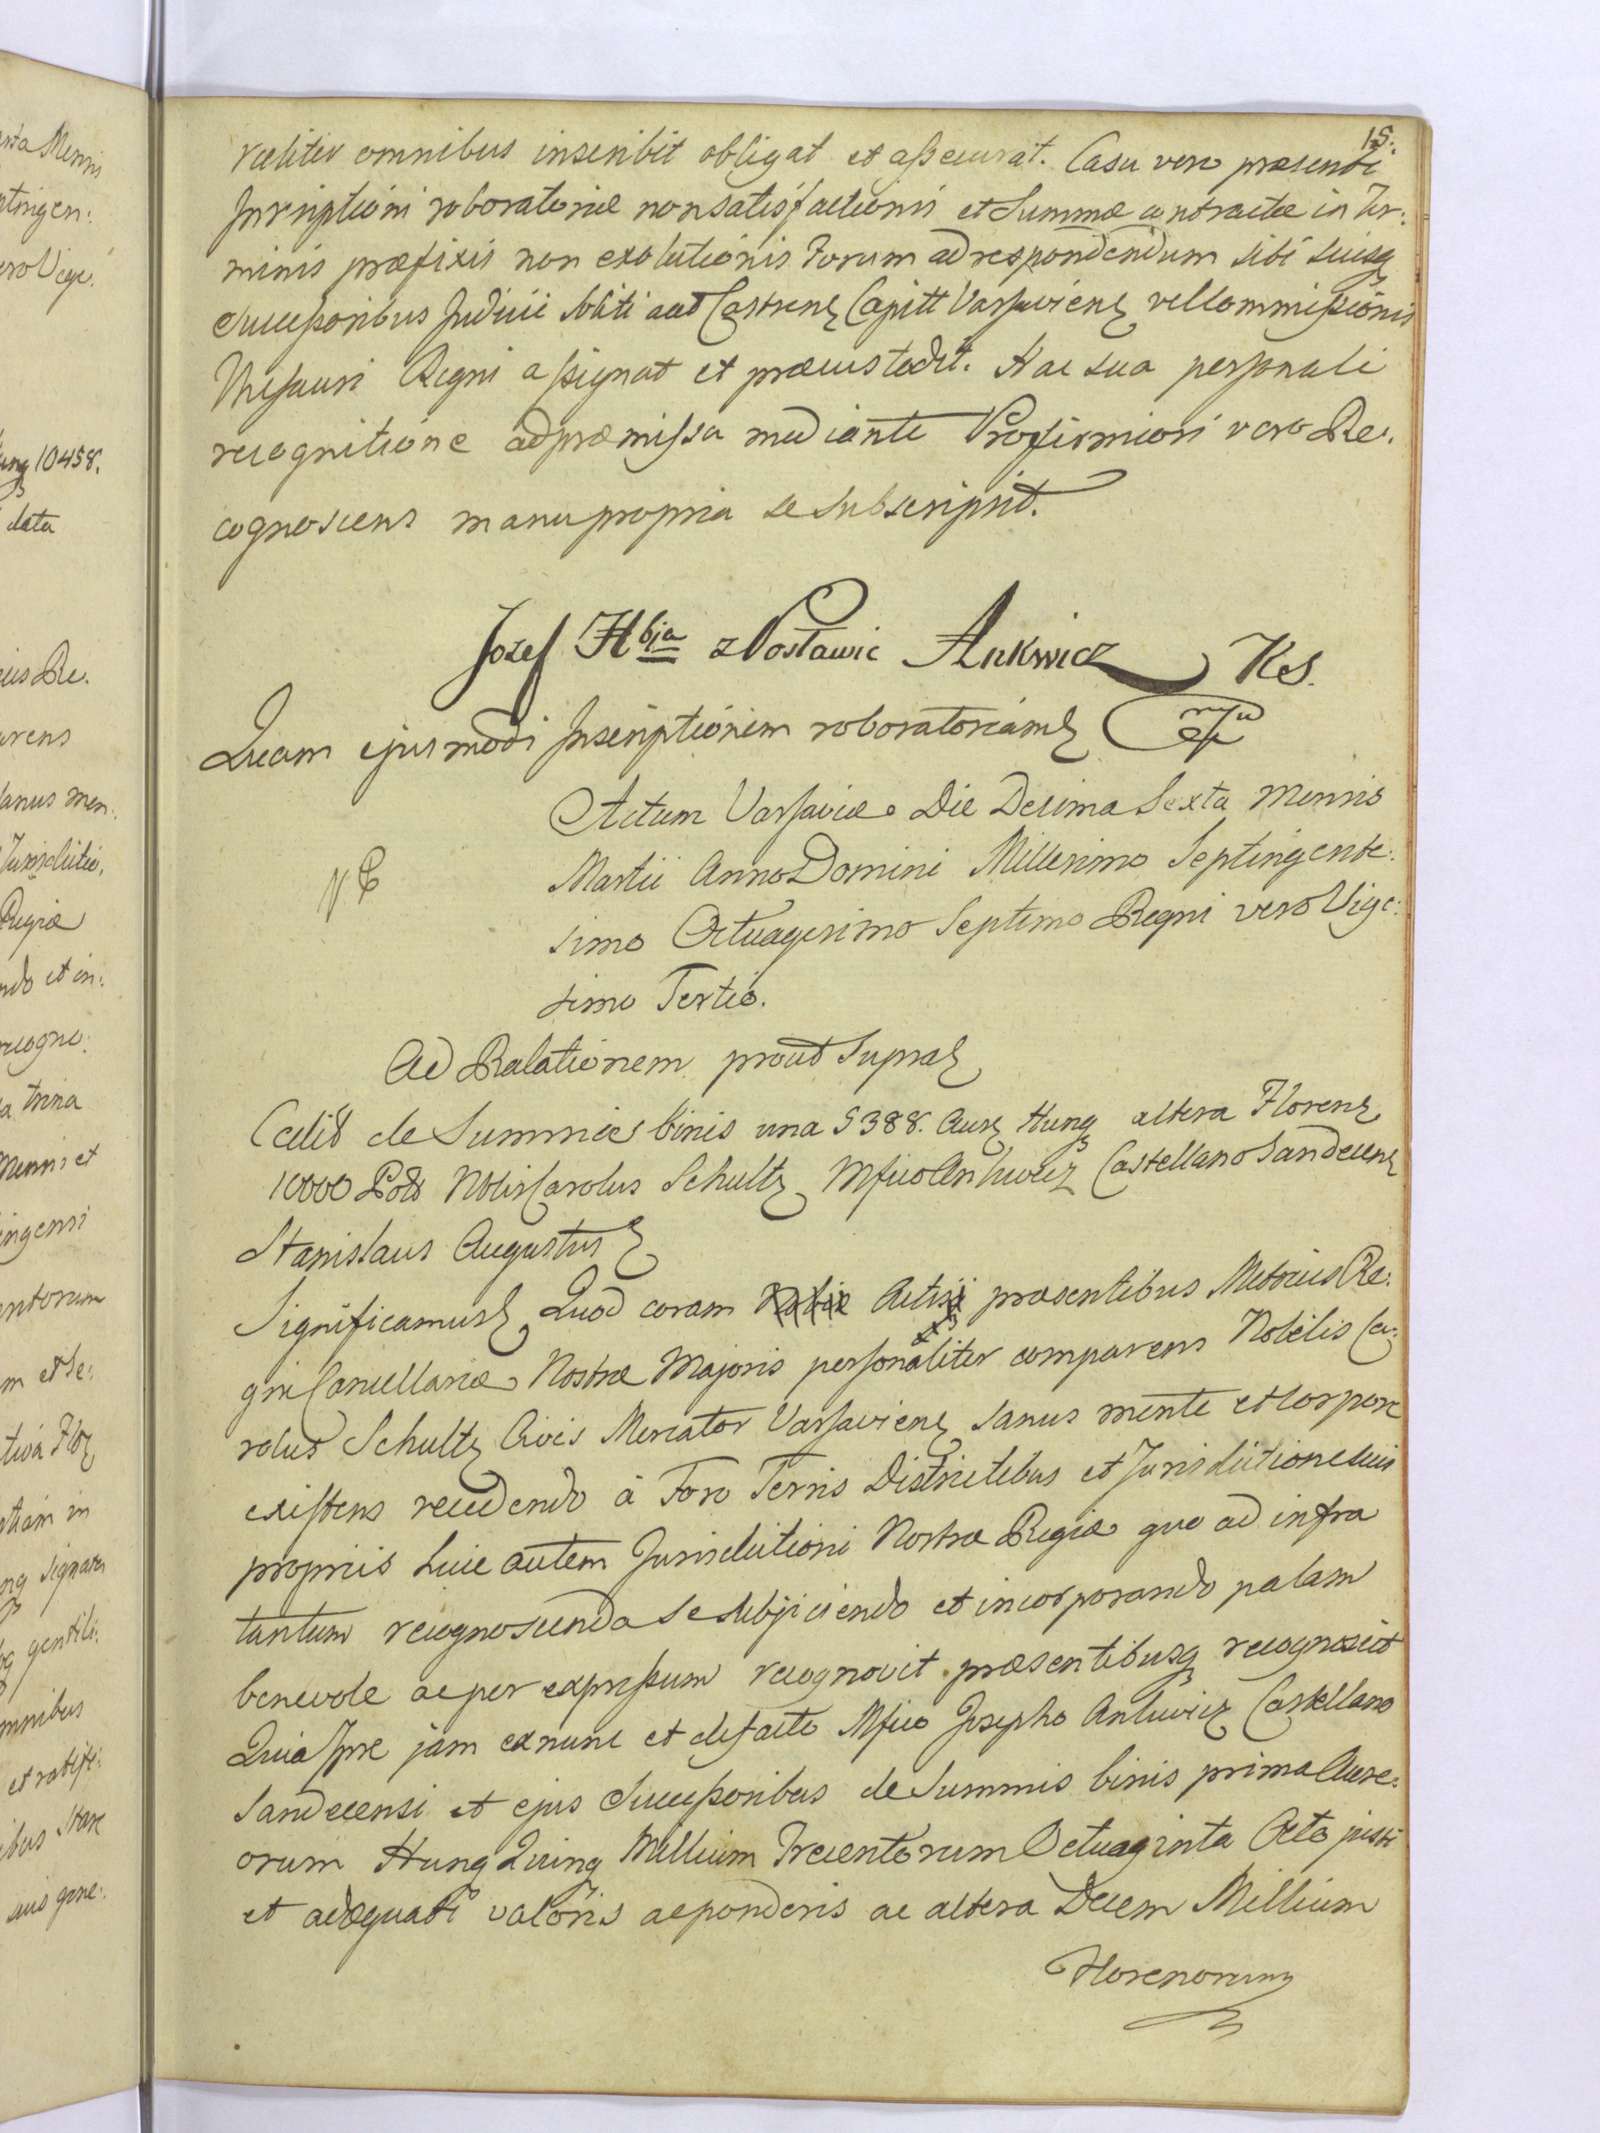 15.
raliter omnibus inscribit obligat et assecurat. Casu vero præsenti
Inscriptioni roboratoriæ nonsatisfactionis et Summæ contractæ in Ter:
minis præfixis non exolutionis Forum ad respondendum sibi suisq
Successoribus Judicii Castrens Capitt Varsaviens vel Commissionis
Thesauri Regni assignat et præcustodit. Hac sua personali
recognitione ad præmissa mediante Pro firmiori vero Re:
cognoscens manu propria se subscripsit.
Jozef Hbia z Posławic Ankwicz KS.
Quam ejusmodi Inscriptionem roboratoriam
Actum Varsaviæ Die Decima Sexta Mensis
Martii Anno Domini Millesimo Septingente:
simo Octuagesimo Septimo Regni vero Vige:
simo Tertio.
Ad Ralationem prout Supra
Cedit de Summis binis una 5388. Aur Hung altera Floren
10000 Pol Nblis Carolus Schultz Mfico Ankwicz Castellano Sandecens
Stanislaus Augustus
Significamus Quod coram Actis præsentibus Metrices Re:
gni Cancellariæ Nostræ Majoris personaliter comparens Nobilis Ca:
rolus Schultz Civis Mercator Varsaviens sanus mente et corpore
existens recedendo à Foro Terris Districtibus et Jurisdictione suis
propriis huic autem Jurisdictioni Nostræ Regiæ quo ad infra
tantum recognoscenda se subjiciendo et incorporando palam
benevole ac per expressum recognovit præsentibusq recognoscit
Quia Ipse jam ex nunc et de facto Mfico Josepho Ankwicz Castellano
Sandecensi et ejus Successoribus de Summis binis prima Aure:
orum Hung Quinq Millium Trecentorum Octuaginta Octo justi
et adæquati valoris ac ponderis ac altera Decem Millium
Florenorum